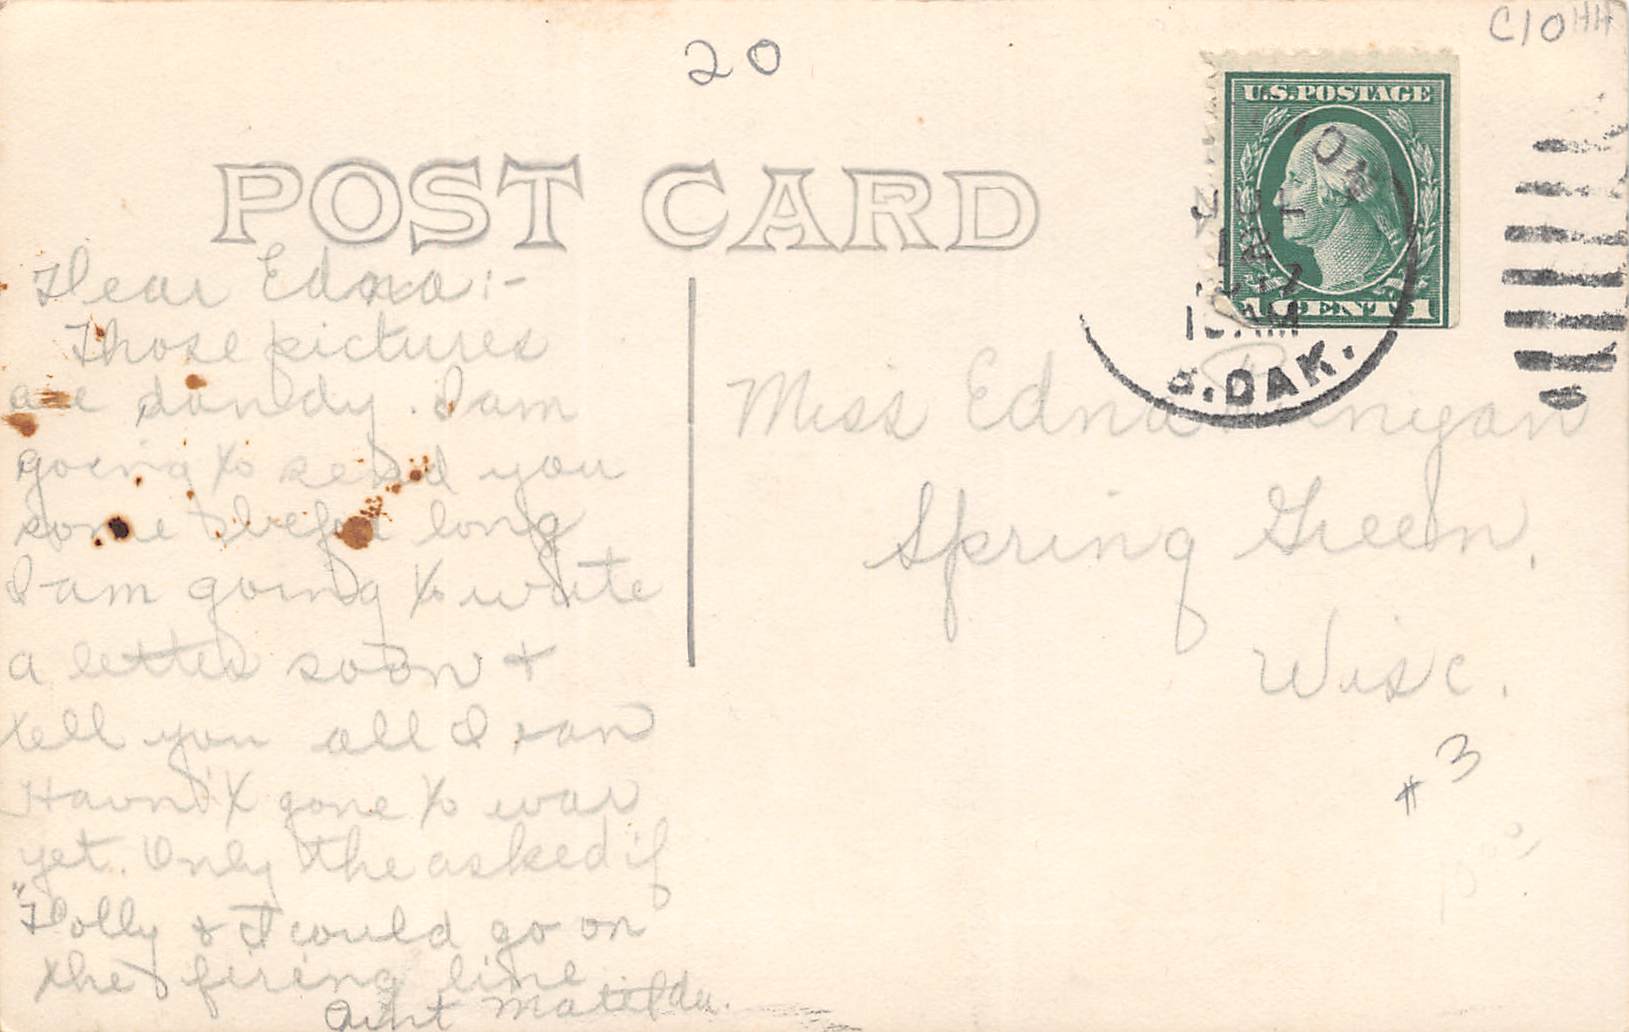 C10HH
20
U.S.POSTAGE
POST CARD
12
AM
CENT 1
S.DAK.
Dear Edna:-
Those pictures
are dandy. I am
going to send you
some before long
I am going to write
a letter soon &
tell you all I can
Havn't gone to war
yet. Only the asked if
"Dolly & I could go on
the firing line
Aunt Matilda.
Miss Edna
Spring Green,
Wisc.
#3